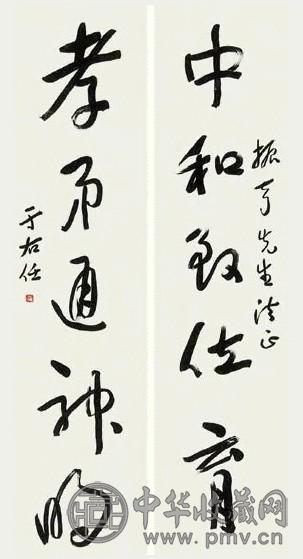 中和致位育
振亨先生法正
孝弟通神明
于右任
中华收藏网
www.pmv.cn